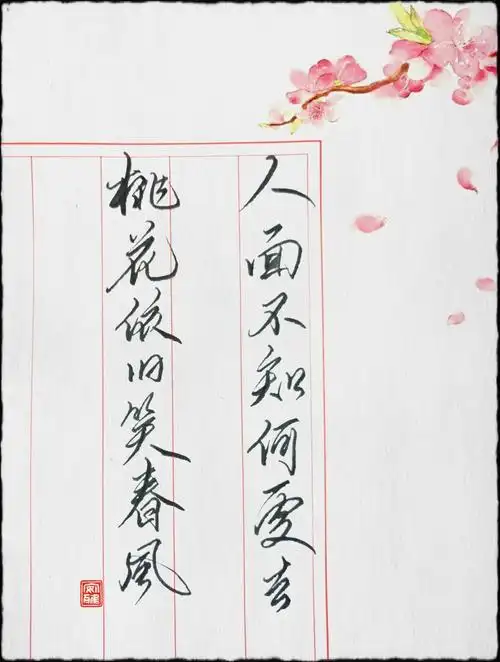 人面不知何处去
桃花依旧笑春風